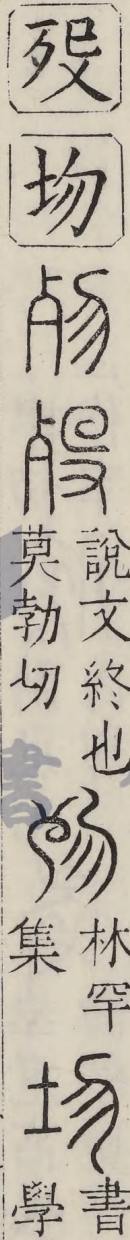 歿
圽
歾
歿
說文終也
莫勃切
林罕
集
圽
書
學